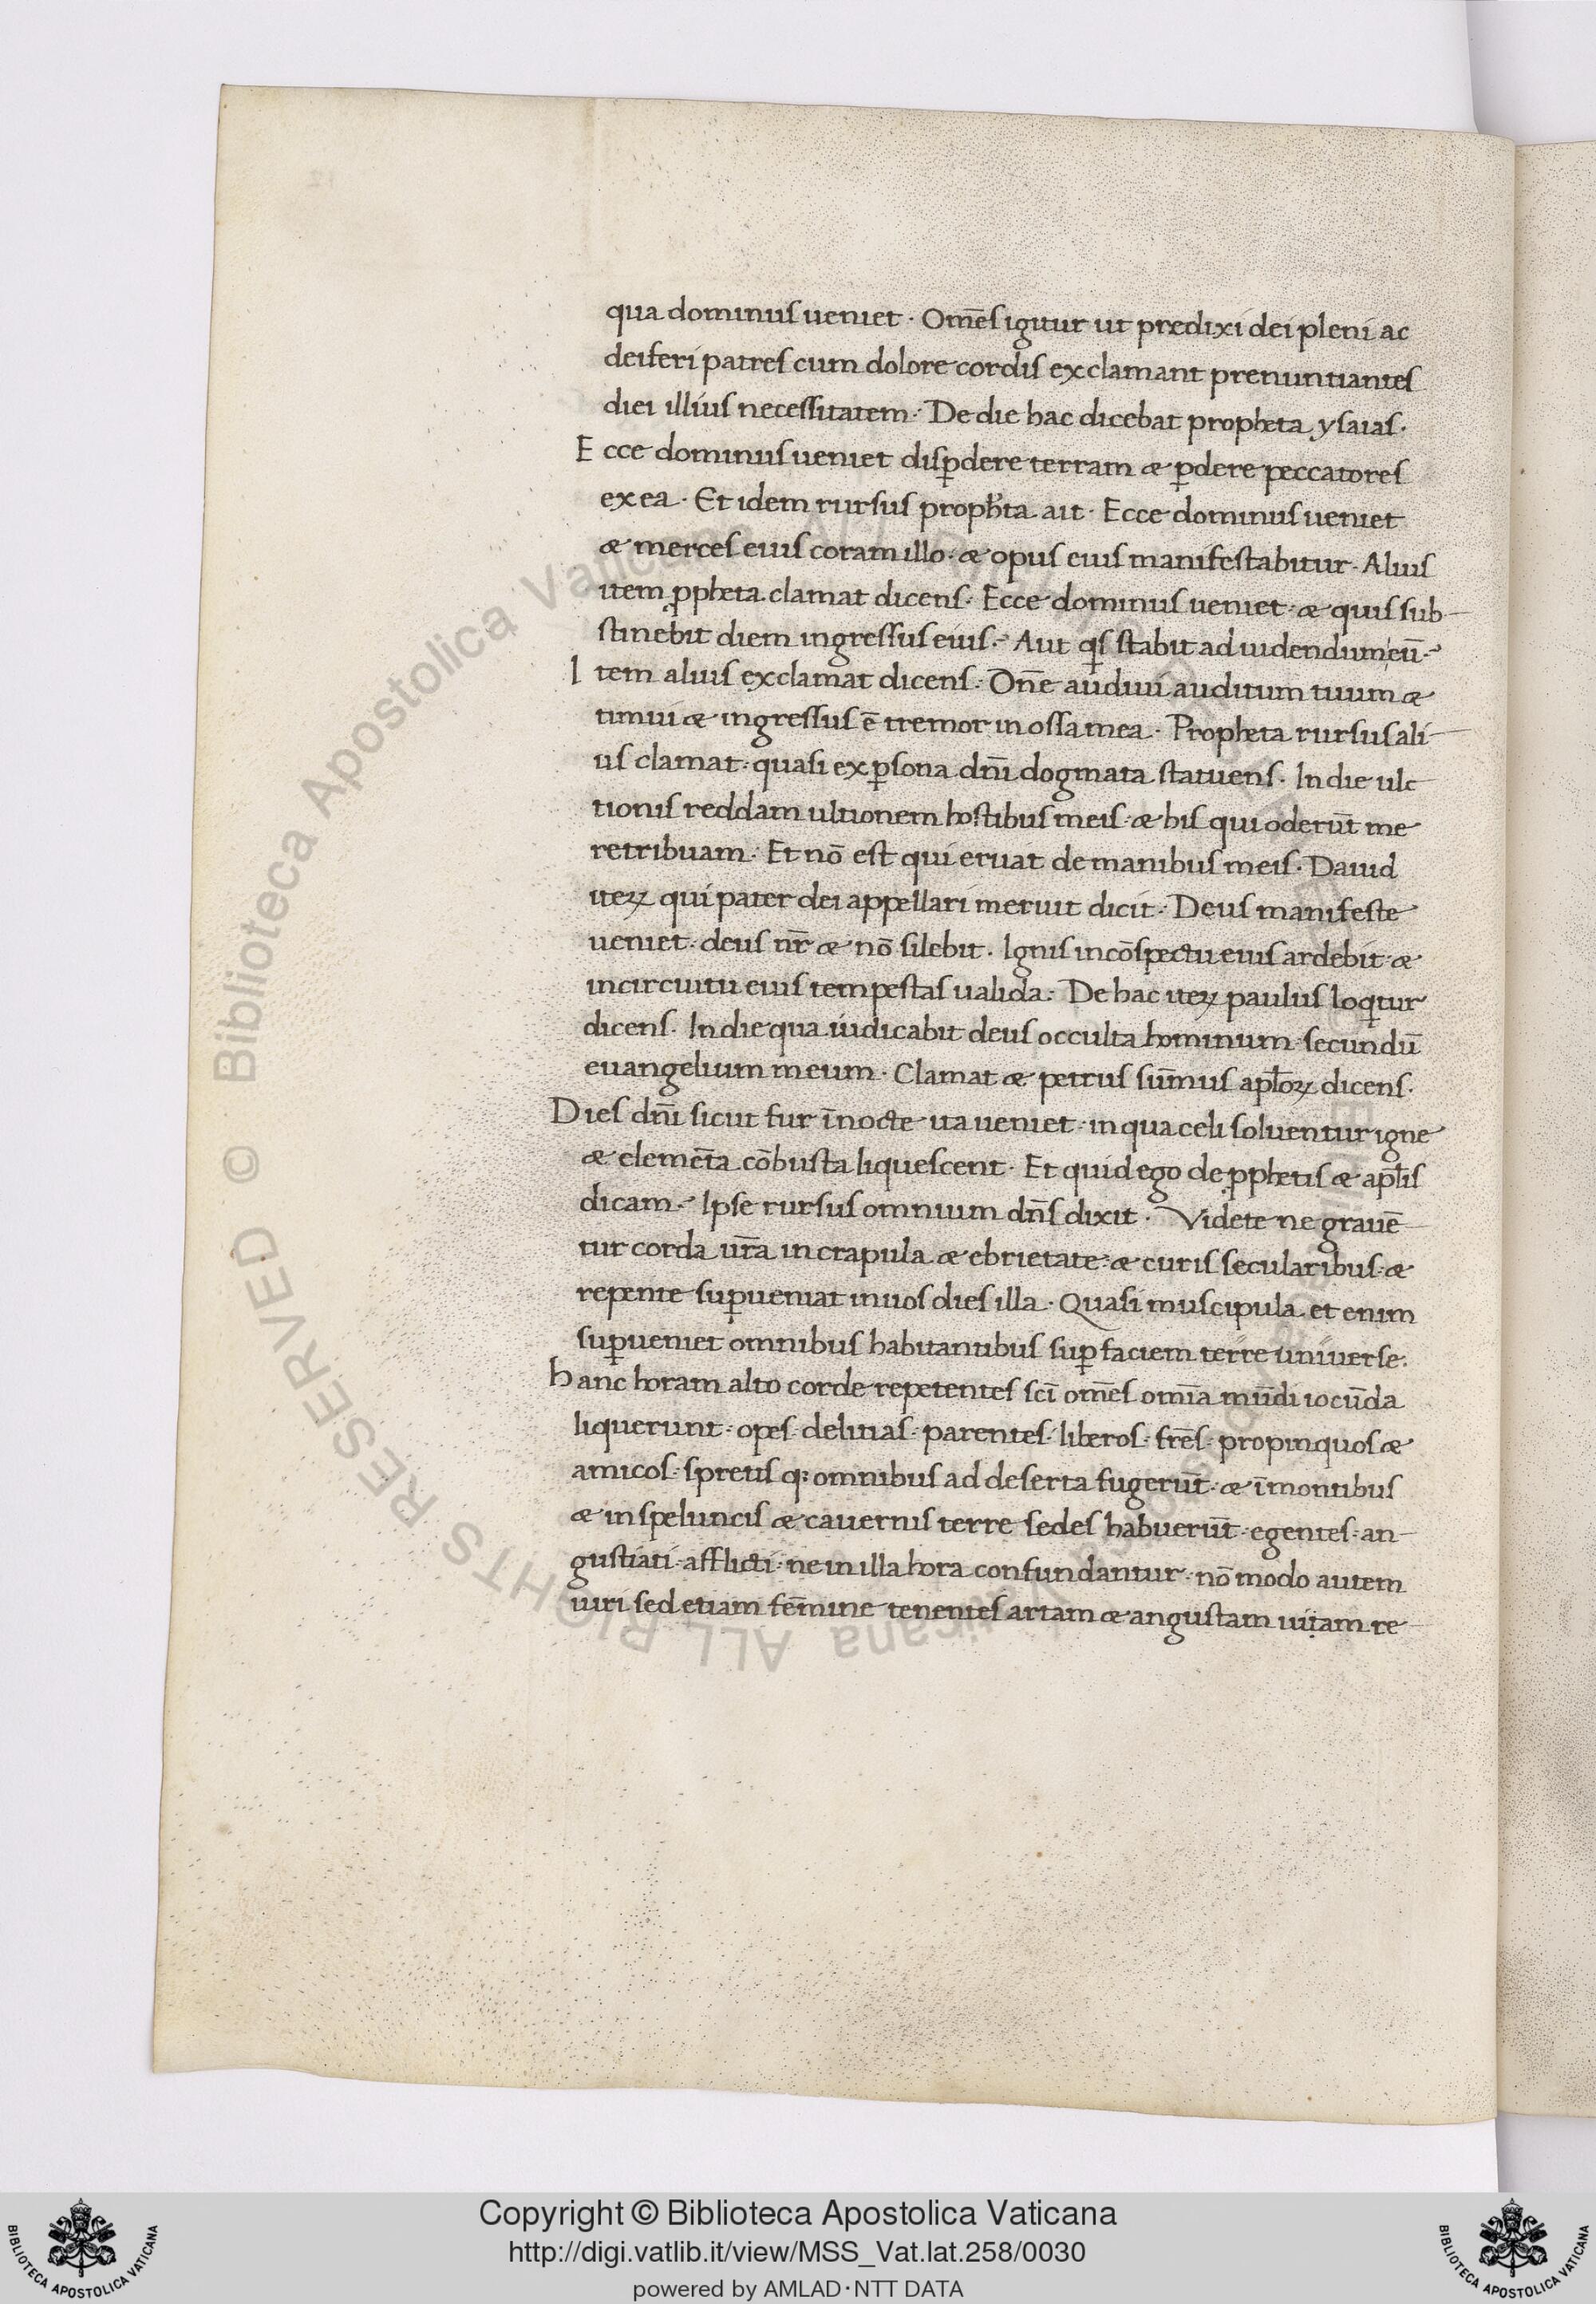 qua dominus ueniet · Om̄es igitur ut predixi dei pleni ac
deiferi patres cum dolore cordis exclamant prenuntiantes
diei illius necessitatem · De die hac dicebat propheta ysaias ·
Ecce dominus ueniet disꝑdere terram æ ꝑdere peccatores
ex ea · Et idem rursus proph̾ta ait · Ecce dominus ueniet
æ merces eius coram illo · æ opus eius manifestabitur · Alius
item ꝓpheta clamat dicens · Ecce dominus ueniet · æ quis sub-
stinebit diem ingressus eius · Aut qͥs stabit ad uidendum eū ·
Item alius exclamat dicens · Dn̄e audiui auditum tuum æ
timui æ ingressus ē tremor in ossa mea · Propheta rursus ali-
us clamat · quasi ex ꝑsona dn̄i dogmata statuens · In die ulc
tionis reddam ultionem hostibus meis · æ his qui oderūt me
retribuam · Et nō est qui eruat de manibus meis · Dauid
iteꝝ qui pater dei appellari meruit dicit · Deus manifeste
ueniet · deus nr̄ æ nō silebit · Ignis in cōspectu eius ardebit · æ
in circuitu eius tempestas ualida · De hac iteꝝ paulus loqͥtur
dicens · In die qua iudicabit deus occulta hominum · secundū
euangelium meum · Clamat æ petrus sūmus apl̄oꝝ dicens ·
Dies dn̄i sicut fur ī nocte ita ueniet · in qua celi soluentur igne
æ elemēta cōbusta liquescent · Et quid ego de ꝓphetis æ apl̄is
dicam · Ipse rursus omnium dn̄s dixit · Videte ne grauē
tur corda ur̄a in crapula æ ebrietate · æ curis secularibus · æ
repente suꝑueniat in uos dies illa · Quasi muscipula et enim
suꝑueniet omnibus habitantibus suꝑ faciem terre uniuerse ·
Hanc horam alto corde repetentes sc̄i om̄es om̄ia mūdi iocūda
liquerunt · opes · delitias · parentes · liberos · fr̄es · propinquos æ
amicos · spretis qꝫ omnibus ad deserta fugerūt · æ ī montibus
æ in speluncis æ cauernis terre sedes habuerūt · egentes · an-
gustiati · afflicti · ne in illa hora confundantur · nō modo autem
uiri sed etiam fēmine tenentes artam æ angustam uitam re-
Copyright © Biblioteca Apostolica Vaticana
http://digi.vatlib.it/view/MSS_Vat.lat.258/0030
powered by AMLAD·NTT DATA